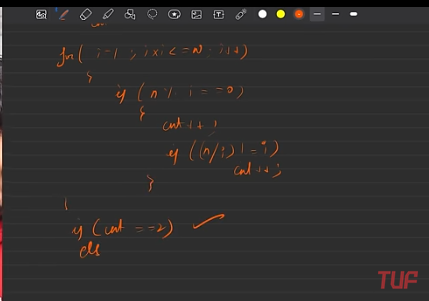 for( i=1 ; i*i <= n ; i++)
{
if ( n % i == 0)
{
cnt++;
if ((n/i) != i)
cnt++;
}
if (cnt == 2)
els
TUF